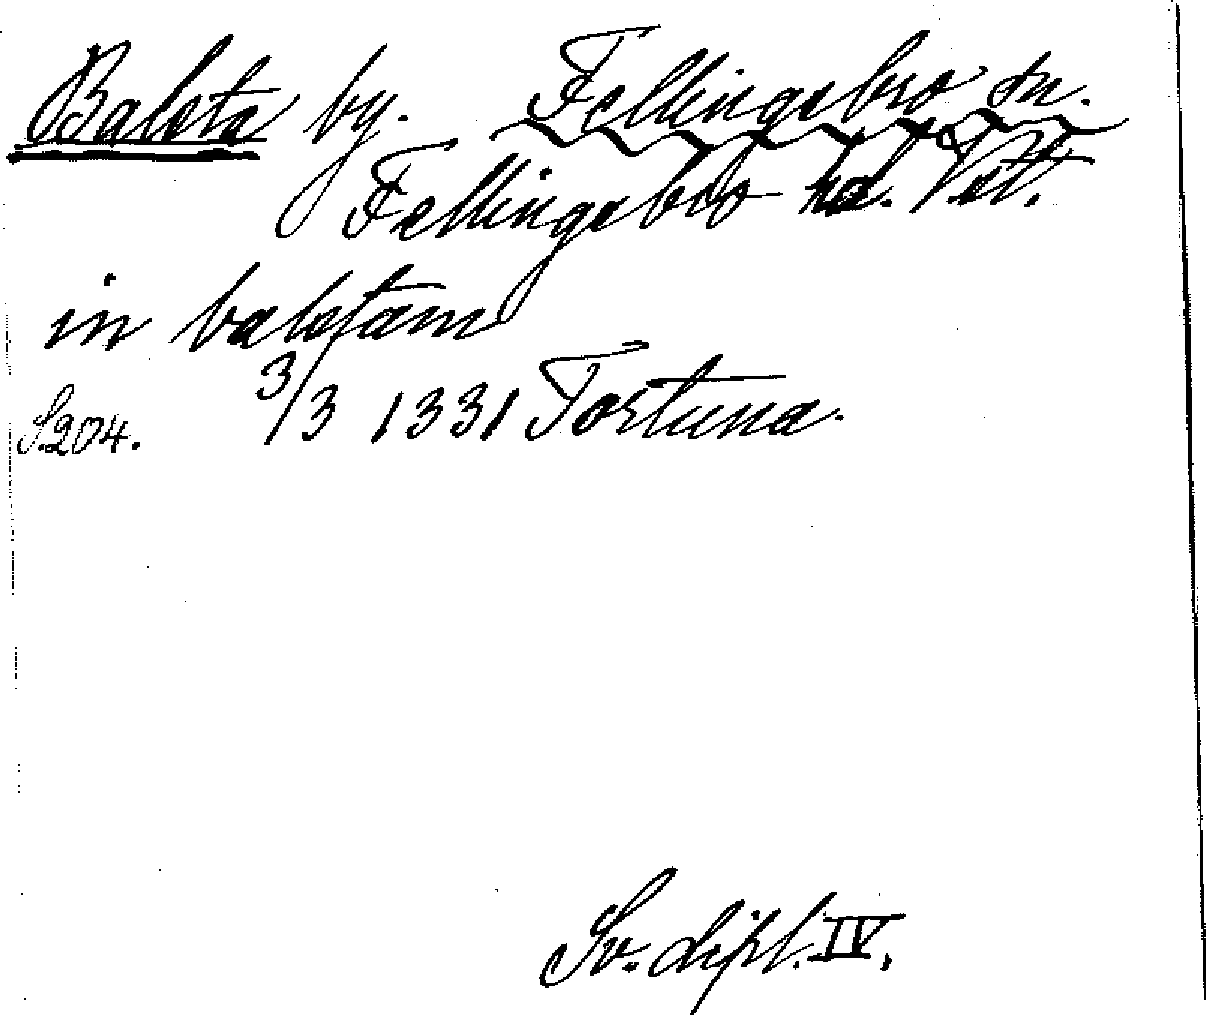 Balsta by. Fellingsbro sn.
Fellingsbro hd. Vstl.
in balstam
3/3 1331 Tortuna.
S. 204.
Sv. dipl. IV.